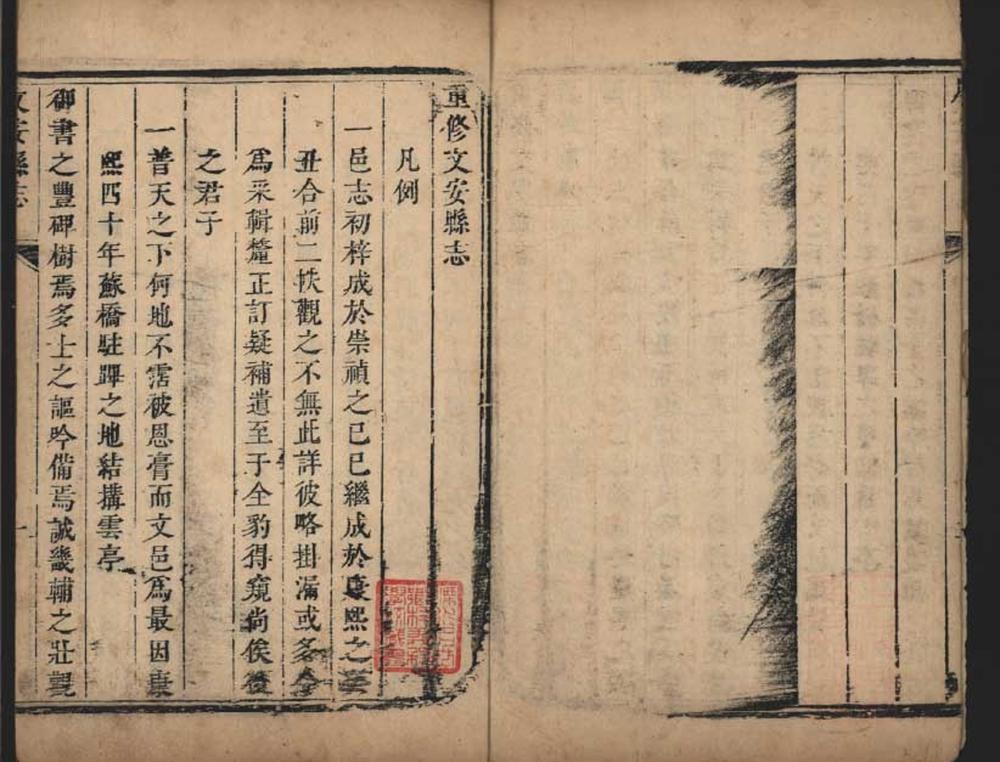 重修文安縣志
凡例
一邑志初梓成於崇禎之己巳繼成於康熙之癸
丑合前二帙觀之不無此詳彼略掛漏或多今
爲采輯釐正訂疑補遺至于全豹得窺尚俟後
之君子
一普天之下何地不霑被恩膏而文邑爲最因康
熙四十年蘇橋駐蹕之地結搆雲亭
御書之豐碑樹焉多士之謳吟備焉誠畿輔之壯觀
文安縣志
一